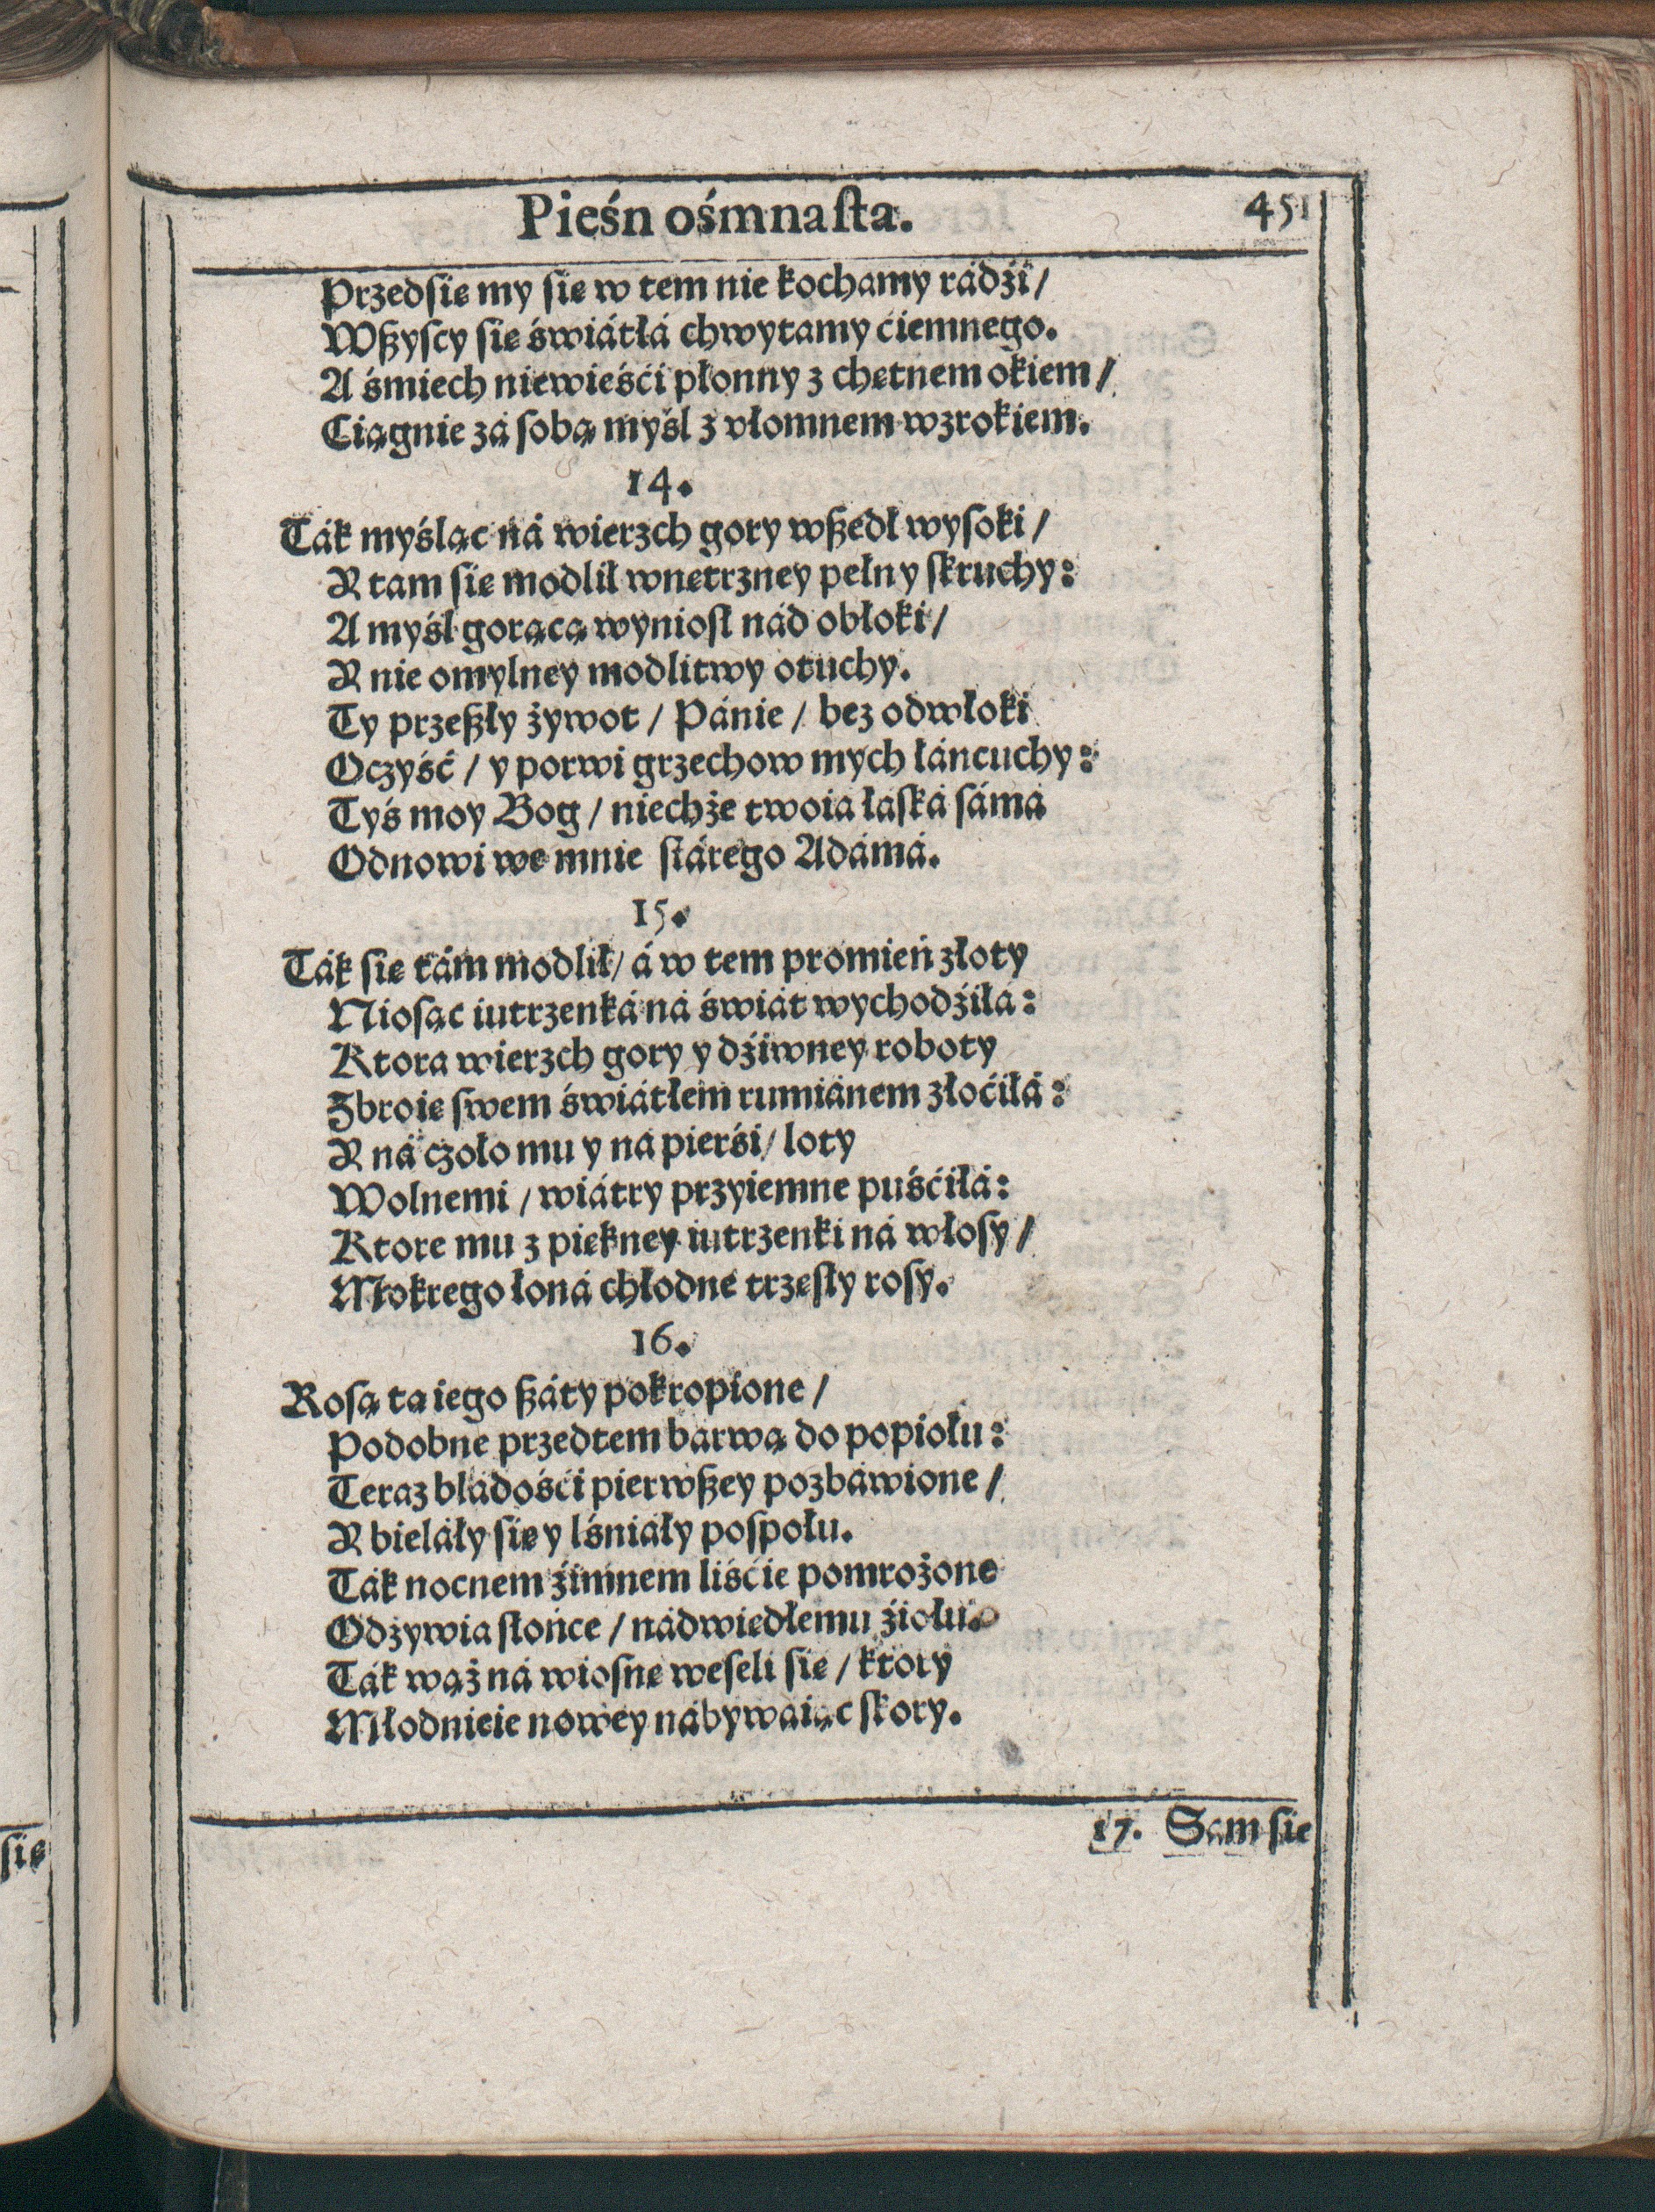 Pieśn ośmnaſta. 451
Przedſię my ſię w tem nie kochamy rádźi/
Wßyſcy ſię świátłá chwytamy ćiemnego.
A śmiech niewieśći płonny z chętnem okiem/
Ciągnie zá ſobą myśl z vłomnem wzrokiem.
14.
Ták myśląc ná wierzch gory wßedł wyſoki/
Y tam ſię modlił wnętrzney pełny ſkruchy:
A myśl gorącą wynioſł nád obłoki/
Y nie omylney modlitwy otuchy.
Ty przeßły żywot/ Pánie/ bez odwłoki
Oczyść/ y porwi grzechow mych łáncuchy:
Tyś moy Bog/ niechże twoiá łáſká ſámá
Odnowi we mnie ſtárego Adámá.
15.
Ták ſię tám modlił/ á w tem promień złoty
Nioſąc iutrzenká ná świát wychodźiłá:
Ktora wierzch gory y dźiwney roboty
Zbroię ſwem świátłem rumiánem złoćiłá:
Y ná czoło mu y ná pierśi/ loty
Wolnemi/ wiátry przyiemne puśćiłá:
Ktore mu z piękney iutrzenki ná włoſy/
Mokrego łoná chłodne trzęſły roſy.
16.
Roſą tą iego ßáty pokropione/
Podobne przedtem bárwą do popiołu:
Teraz bládośći pierwßey pozbáwione/
Y bieláły ſię y lśniáły poſpołu.
Ták nocnem źimnem liśćie pomrożone
Odżywia ſłońce/ nádwiędłemu źiołu.
Ták wąż ná wioſnę weſeli ſię/ ktory
Młodnieie nowey nábywáiąc ſkory.
17. Sam ſię
ſię